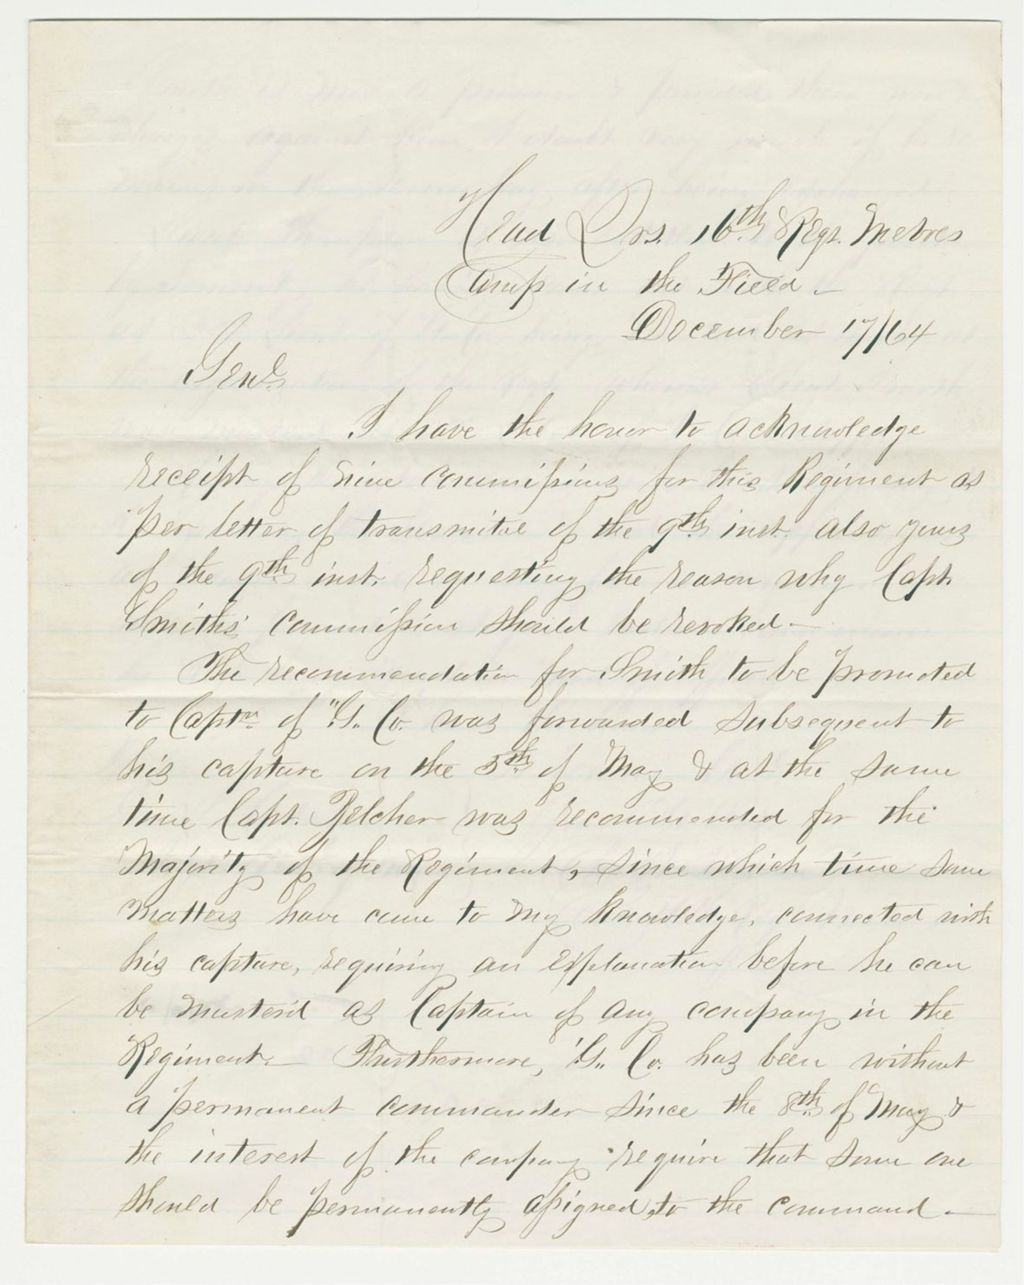 Head Qrs. 16th Regt. Me Vols
Camp in the Field –
December 17/64
Genl.
I have the honor to acknowledge
receipt of nine commissions for this Regiment as
per letter of transmital of the 9th inst. also yours
of the 9th inst. requesting the reason why Capt.
Smiths' commission should be revoked –
The recommendation for Smith to be promoted
to Captn of "G" Co. was forwarded subsequent to
his capture on the 5th of May & at the same
time Capt. Belcher was recommended for the
Majority of the Regiment, since which time some
matters have come to my knowledge, connected with
his capture, requiring an explanation before he can
be muster'd as Captain of any company in the
Regiment – Furthermore, "G" Co. has been without
a permanent commander since the 8th of May &
the interest of the company require that some one
should be permanently assigned to the command –